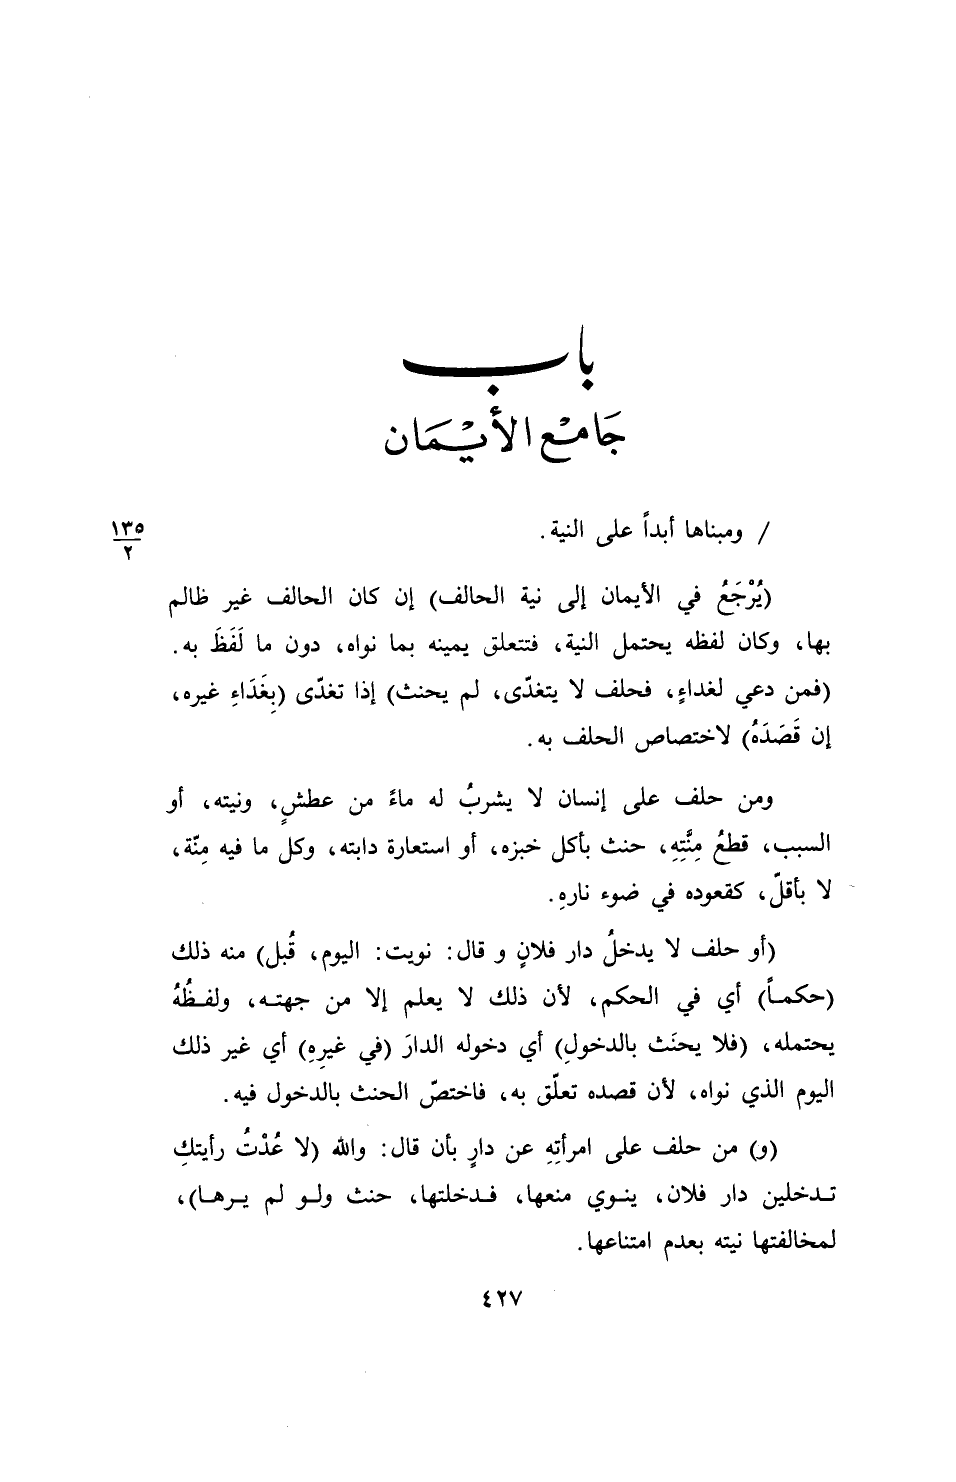 باب
جَامِعْ الأَيْمَان
١٣٥
٢
/ ومبناها أبداً على النية.
(يُرْجَعُ في الأيمان إلى نية الحالف) إن كان الحالف غير ظالم
بها، وكان لفظه يحتمل النية، فتتعلق يمينه بما نواه، دون ما لَفَظَ به.
(فمن دعي لغداءٍ، فحلف لا يتغدّى، لم يحنث) إذا تغدّى (بِغَدَاءِ غيره،
إن قَصَدَهُ) لاختصاص الحلف به.
ومن حلف على إنسان لا يشربُ له ماءً من عطشٍ، ونيته، أو
السبب، قطعُ مِنَّتِهِ، حنث بأكل خبزه، أو استعارة دابته، وكل ما فيه مِنّة،
لا بأقلّ، كقعوده في ضوء نارهِ.
(أو حلف لا يدخلُ دار فلانٍ و قال: نويت: اليوم، قُبل) منه ذلك
(حكماً) أي في الحكم، لأن ذلك لا يعلم إلا من جهته، ولفظُهُ
يحتمله، (فلا يحنَث بالدخولِ) أي دخوله الدارَ (في غيرِهِ) أي غير ذلك
اليوم الذي نواه، لأن قصده تعلّق به، فاختصّ الحنث بالدخول فيه.
(و) من حلف على امرأتِهِ عن دارٍ بأن قال: والله (لا عُدْتُ رأيتكِ
تدخلين دار فلان، ينوي منعها، فدخلتها، حنث ولو لم يرها)،
لمخالفتها نيته بعدم امتناعها.
٤٢٧